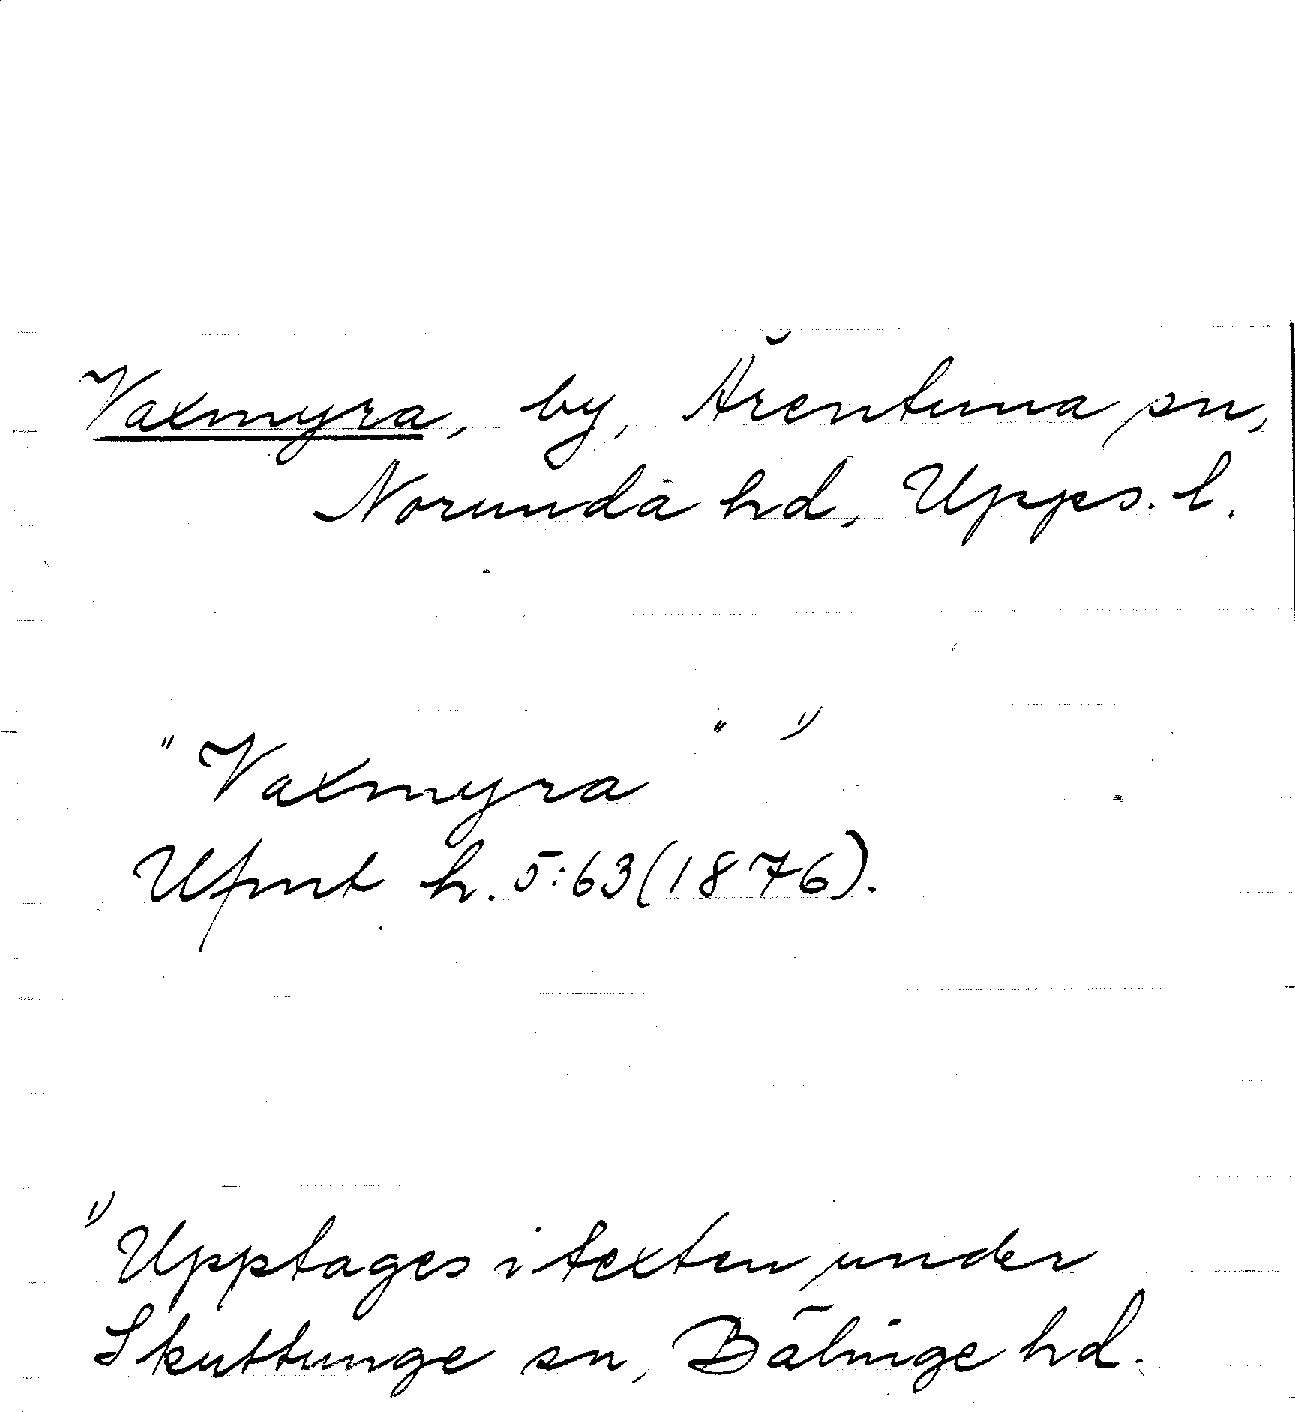 Vaxmyra, by, Ärentuna sn,
Norunda hd, Upps. l.
"Vaxmyra" 1)
Ufmt h. 5:63 (1876).
1) Upptages i texten under
Skuttunge sn, Bälinge hd.